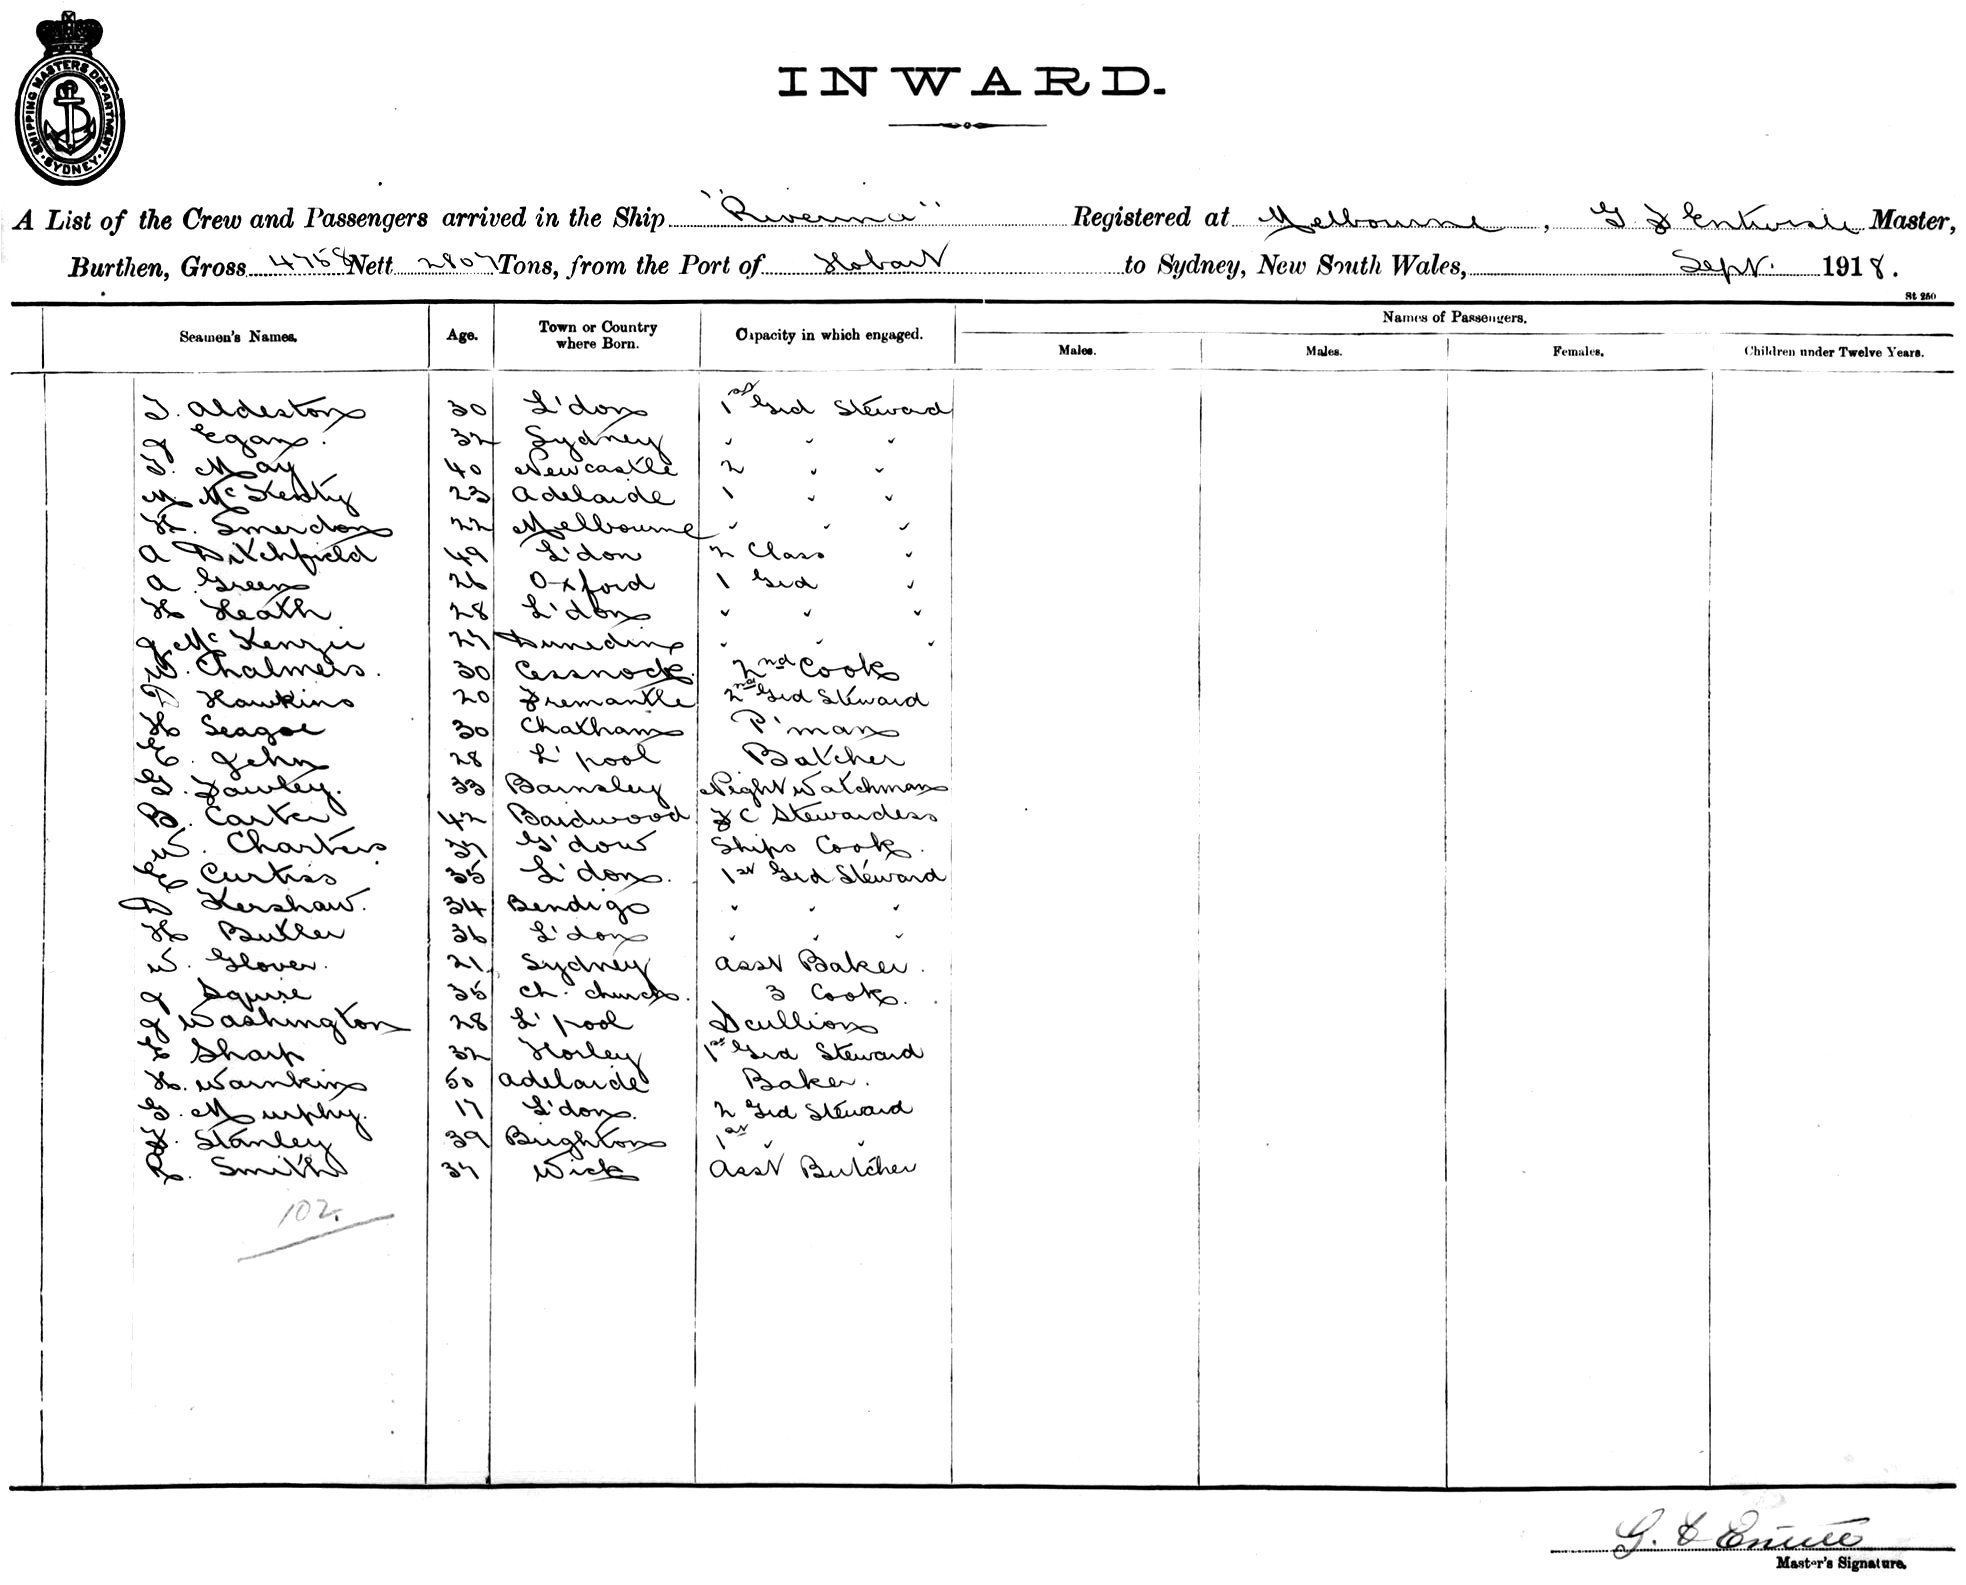 SHIPPING MASTERS DEPARTMENT
SYDNEY
INWARD.
A List of the Crew and Passengers arrived in the Ship "Riverina" Registered at Melbourne, G J Entwisle Master,
Burthen, Gross 4758 Nett 2807 Tons, from the Port of Hobart to Sydney, New South Wales, Sept. 1918.
St 250
Seamen's Names. Age. Town or Country where Born. Capacity in which engaged. Names of Passengers.
Males. Males. Females. Children under Twelve Years.
T. Aldeston 30 L'don 1st Grd Steward
J Egan. 32 Sydney " " "
T. May 40 Newcastle 2 " "
M McKenty 23 Adelaide 1 " "
H. Smerdon 22 Melbourne " " "
A Ditchfield 49 L'don 2 Class "
A Green 26 Oxford 1 Grd "
H Heath 28 L'don " " "
J McKenzie 27 Dunedin " " "
W. Chalmers. 30 Cessnock. 2nd Cook
J Hawkins 20 Fremantle 2nd Grd Steward
H Seagoe 30 Chatham P'man
E. John 28 L'pool Butcher
G. Fawley. 33 Barnsley Night Watchman
B. Carter 42 Baidwood F C Stewardess
W. Charters 37 G'dow Ships Cook.
E Curtiss 35 L'don. 1st Grd Steward
D Kershaw. 34 Bendigo " " "
H Butler 36 L'don " " "
W. Glover. 21 Sydney Asst Baker.
J Squire 35 Ch. church. 3 Cook.
J Washington 28 L'pool Scullion
E Sharp 32 Horley 1st Grd Steward
H. Warnkin 50 Adelaide Baker.
G. Murphy. 17 L'don. 2 Grd Steward
F. Stanley 39 Brighton 1st " "
R. Smith 37 Wick Asst Butcher
102.
G.
Master's Signature.